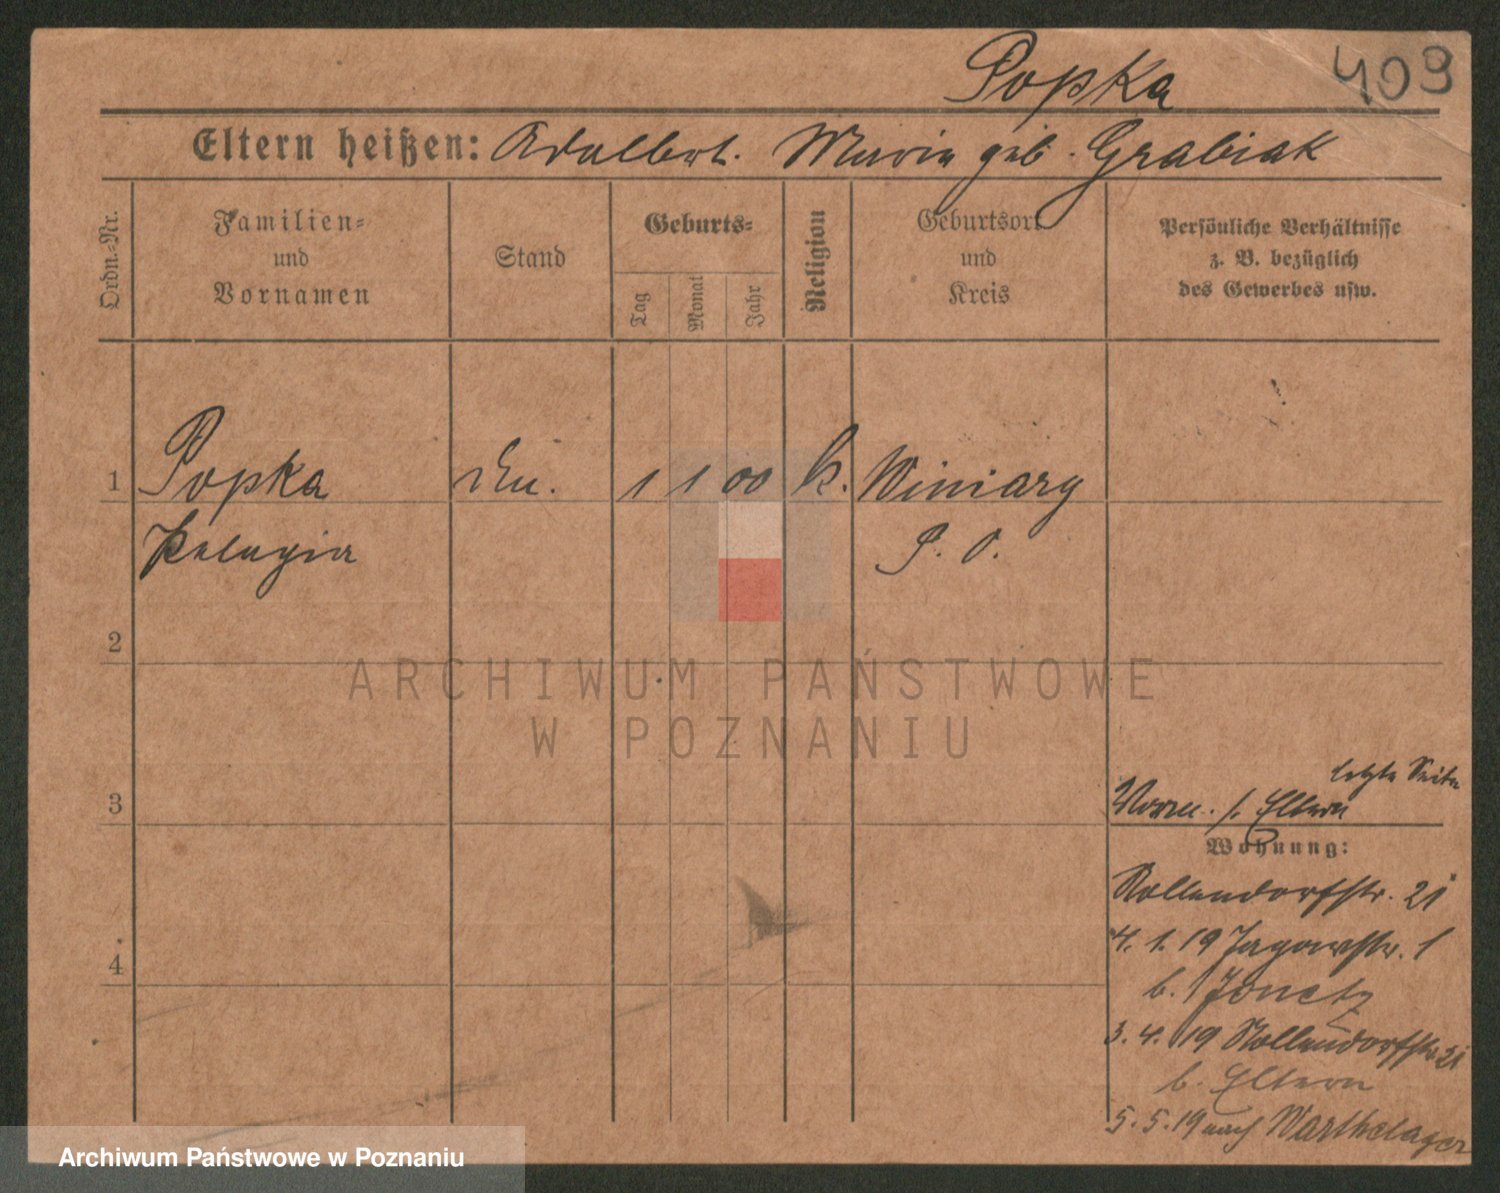 Popka 409
Eltern heißen: Adalbert. Marie geb. Grabiak
Ordn.-Nr.
Familien-
und
Vornamen
Stand
Geburts-
Tag
Monat
Jahr
Religion
Geburtsort
und
Kreis
Persönliche Verhältnisse
z. B. bezüglich
des Gewerbes usw.
1 Popka 1 1 00 k. Winiary
Pelagia P. O.
2
ARCHIWUM PAŃSTWOWE
W POZNANIU
letzte Seite
3 Eltern
Wohnung:
Nollendorfstr. 21
4. 1. 19 Jagowstr. 1
b.
4
3. 4. 19 Nollendorfstr. 21
b. Eltern
5. 5. 19 nach Warthelager
Archiwum Państwowe w Poznaniu